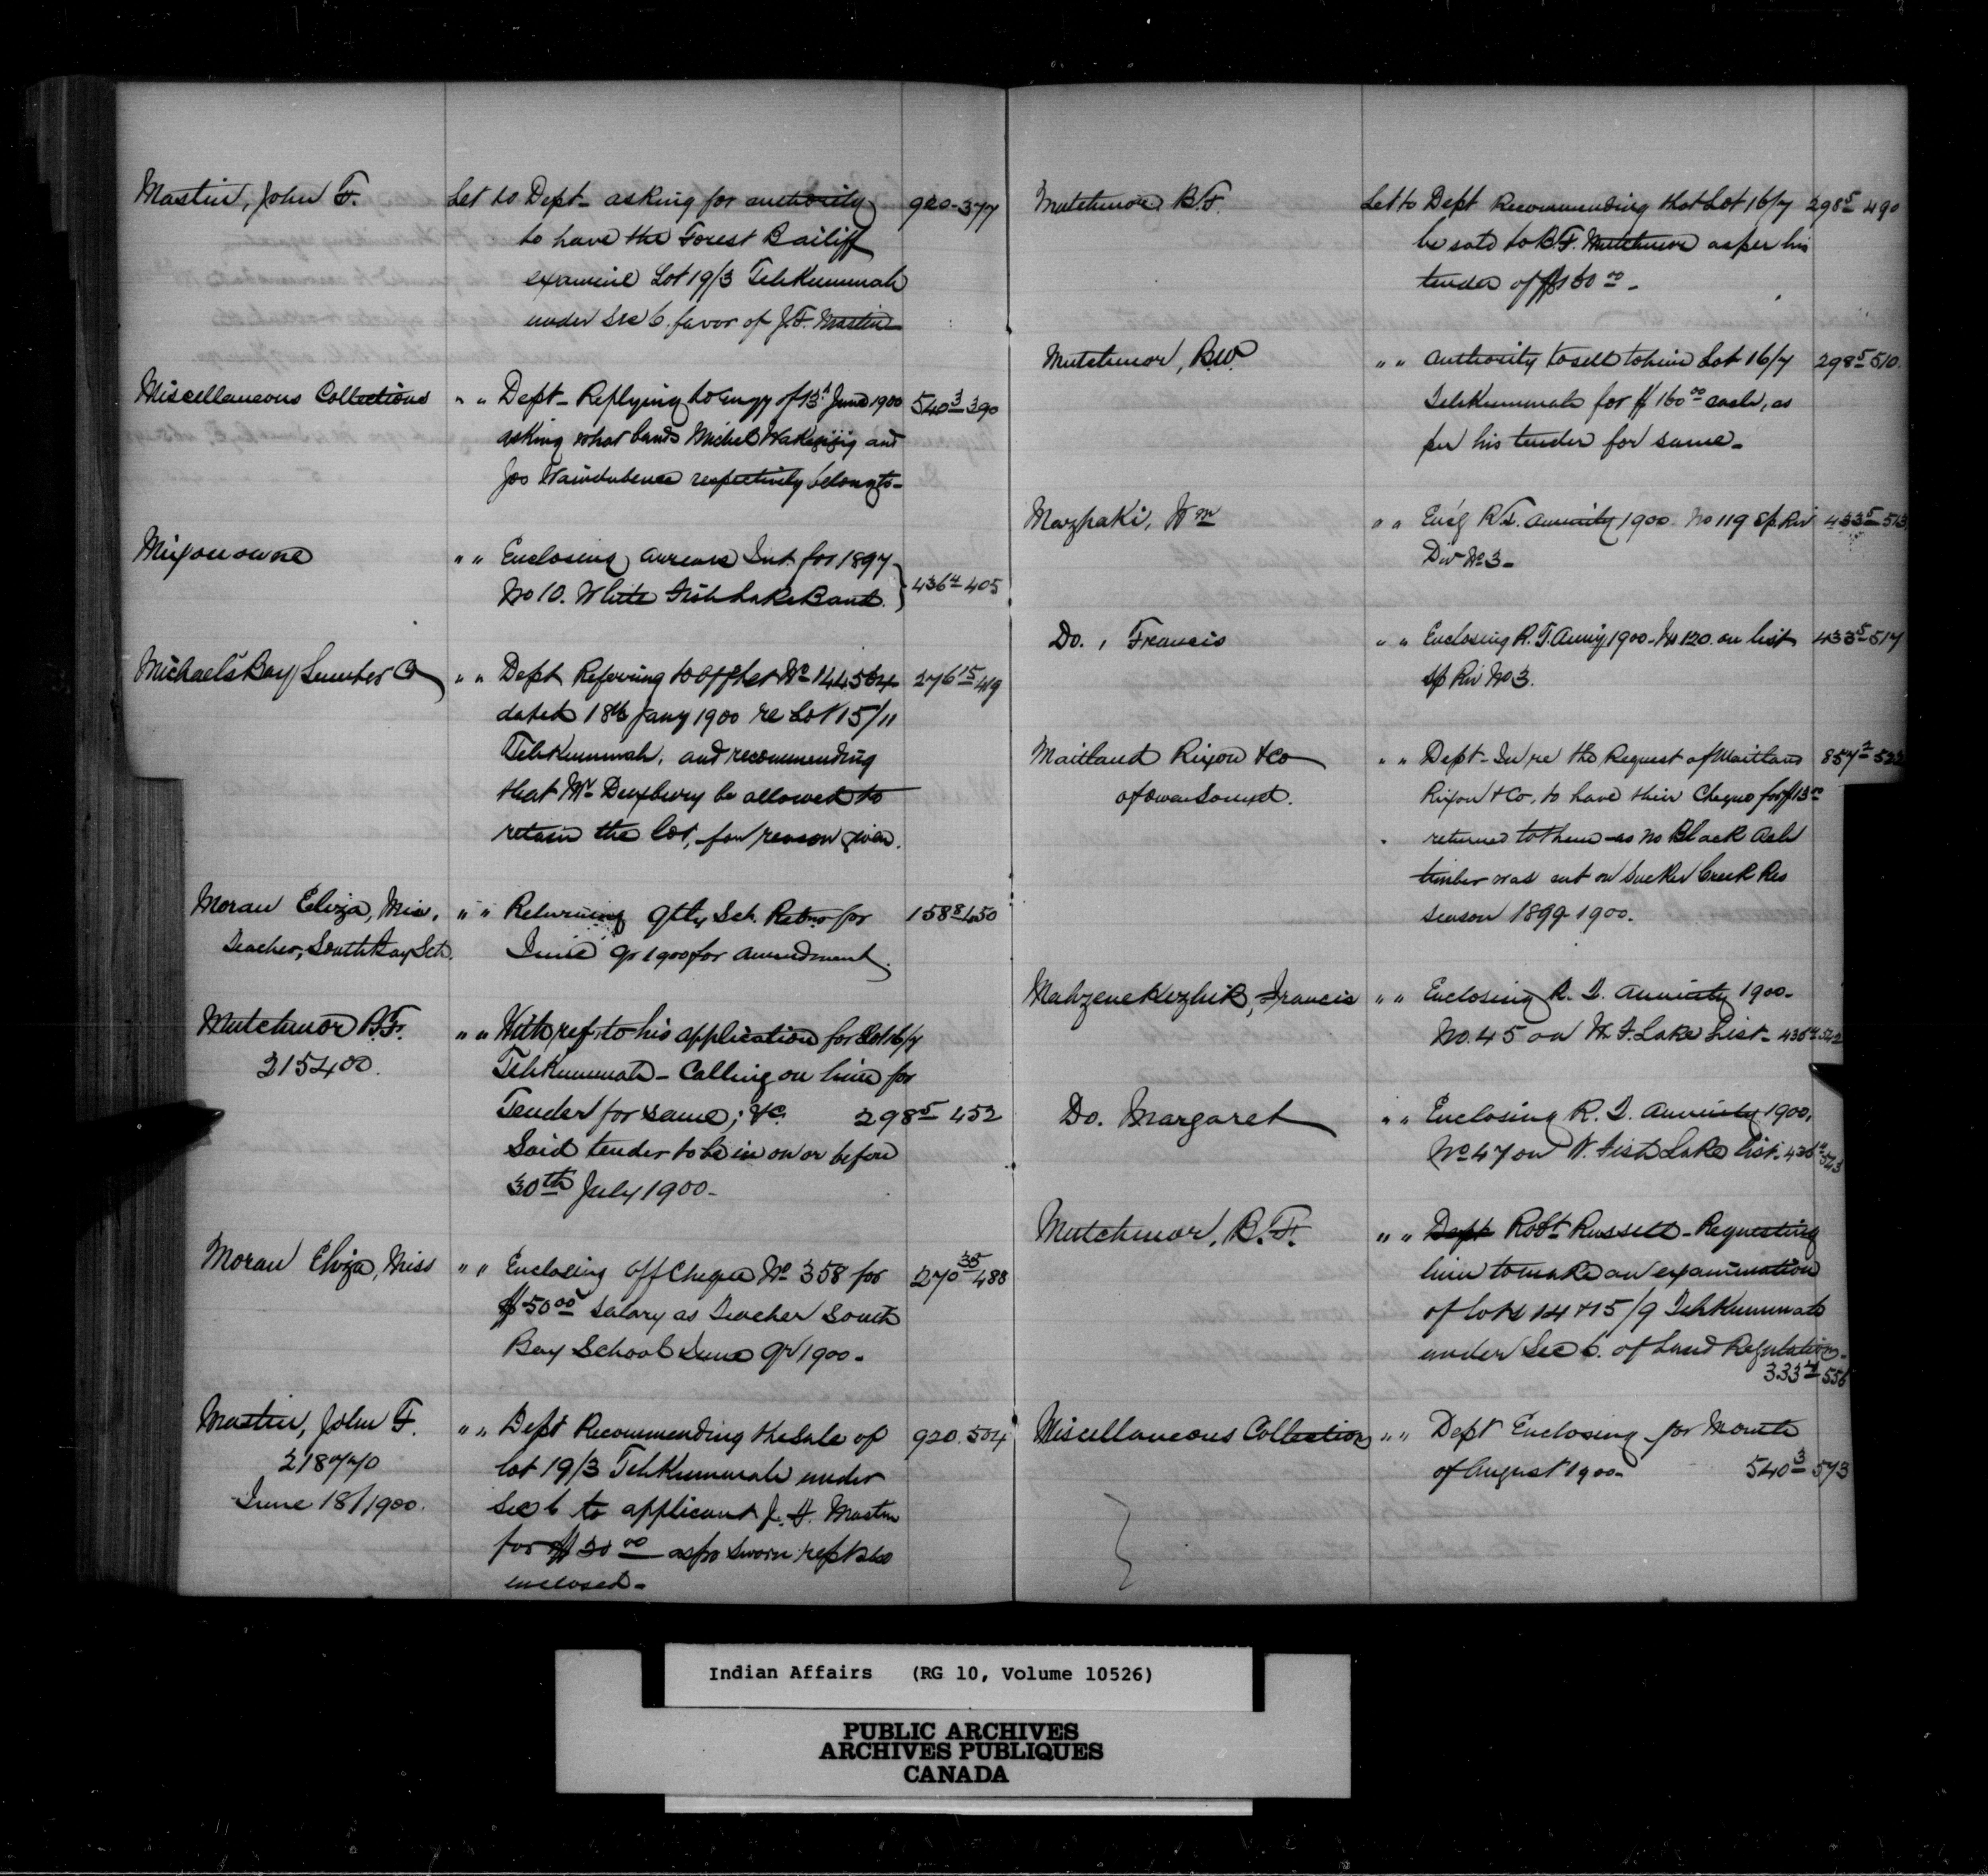 Mastin, John F. Let to Dept - asking for authority 920-377
to have the Forest Bailiff
examine Lot 19/3 Tehkummah
under Sec 6. favor of J.F. Mastin
Miscellaneous Collections " " Dept - Replying to enqy of 13th June 1900 540 3 390
asking what bands Michel Wakegijig and
Jos respectively belong to -
" " Enclosing arrears Int. for 1897
No 10. White Fish Lake Band. } 436 4 405
Michael's Bay Lumber Co " " Dept Referring to off let No 144564 276 15 419
dated 18th Jany 1900 re Lot 15/11
Tehkummah, and recommending
that Mr Duxbury be allowed to
retain the lot, for reason given.
Moran Eliza, Miss, " " Returning qtly Sch. Retns for 158 8 450
Teacher, South Bay Sch. June qr 1900 for amendment.
Mutchmor B.F. " " With ref. to his application for Lot 16/7
215400. Tehkummah - Calling on him for
Tender for same; &c. 298 5 452
Said tender to be in on or before
30th July 1900 -
Moran Eliza, Miss " " Enclosing off Cheque No 358 for 270 35 488
$50 00 salary as Teacher South
Bay School June qr 1900 -
Mastin, John F. " " Dept Recommending the sale of 920. 504
218770 lot 19/3 Tehkummah under
June 18/1900. Sec 6 to applicant J. F. Mastin
for $ 30 00 - as per sworn rept also
enclosed -
Mutchmor B.F. Let to Dept Recommending that Lot 16/7 298 5 490
be sold to B.F. Mutchmor as per his
tender of $160 00 -
Mutchmor, B.W. " " authority to sell to him Lot 16/7 298 5 510
Tehkummah for $ 160 00 cash, as
per his tender for same -
Mazhaki, Wm " " Encg R.T. annuity 1900. No 119 Sp Riv 433 5 513
Div No 3 -
Do. , Francis " " Enclosing R.T. Anny 1900 - No 120. on list 433 5 514
Sp Riv No 3.
Maitland Rixon & Co " " Dept - In re the Request of Maitland 857 2 522
of Owen Sound. Rixon & Co, to have their Cheque for $13 00
returned to them - as no Black Ash
timber was cut on Sucker Creek Res
season 1899-1900.
Mahzenekezhik, Francis " " Enclosing R. T. annuity 1900 -
No. 45 on W. F. Lake List - 436 4 542
Do. Margaret " " Enclosing R. T. annuity 1900,
No 47 on W. Fish Lake list - 436 4 543
Mutchmor, B.F. " " Dept Robt Russell - Requesting
him to make an examination
of lots 14 & 15/9 Tehkummah
under Sec 6. of Land Regulation -
333 4 556
Miscellaneous Collections " " Dept Enclosing for Month
of August 1900 - 540 3 573
Indian Affairs (RG 10, Volume 10526)
PUBLIC ARCHIVES
ARCHIVES PUBLIQUES
CANADA